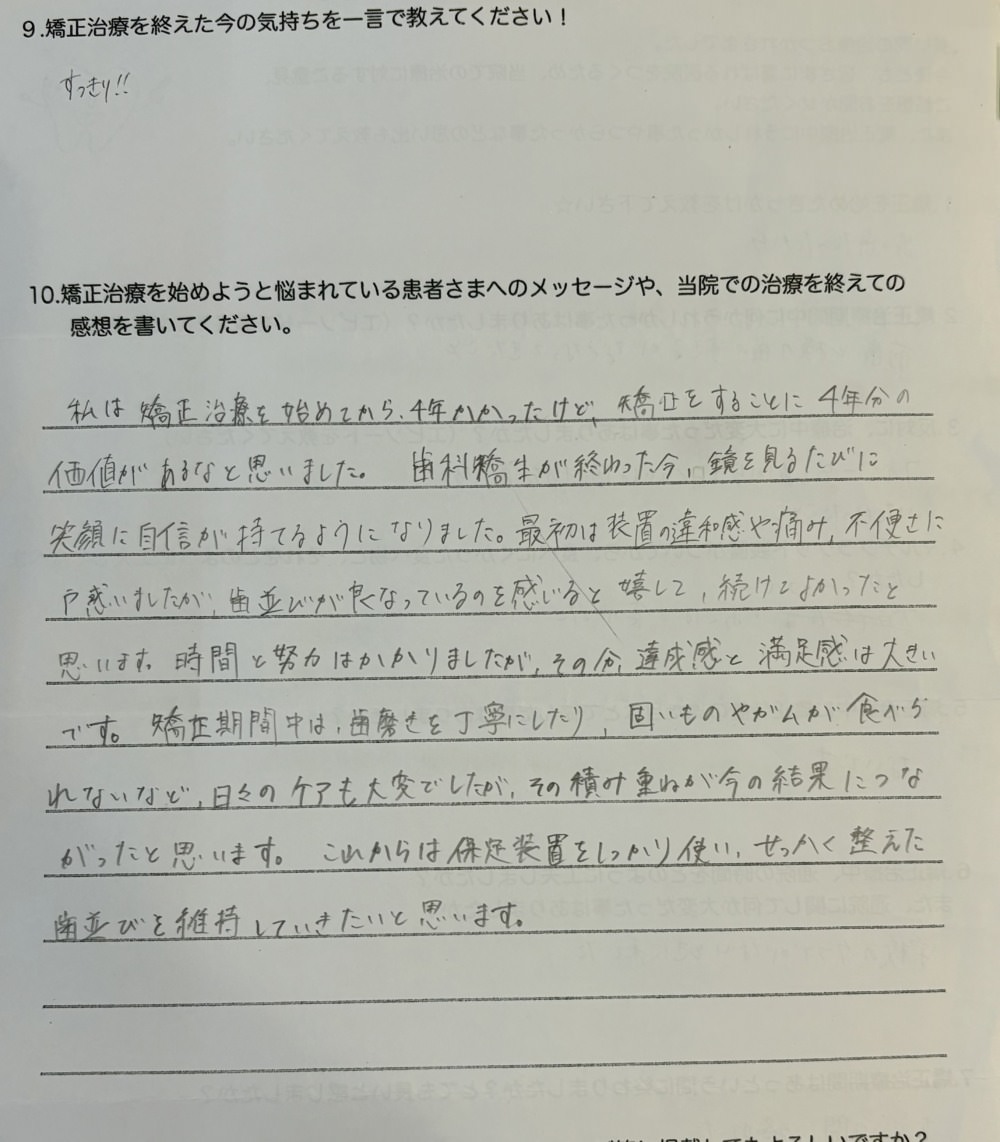 9.矯正治療を終えた今の気持ちを一言で教えてください！
すっきり!!
10.矯正治療を始めようと悩まれている患者さまへのメッセージや、当院での治療を終えての
感想を書いてください。
私は矯正治療を始めてから、4年かかったけど、矯正をすることに4年分の
価値があるなと思いました。歯科矯生が終わった今、鏡を見るたびに
笑顔に自信が持てるようになりました。最初は装置の違和感や痛み、不便さに
戸惑いましたが、歯並びが良くなっているのを感じると嬉して、続けてよかったと
思います。時間と努力はかかりましたが、その分、達成感と満足感は大きい
です。矯正期間中は、歯磨きを丁寧にしたり、固いものやガムが食べら
れないなど、日々のケアも大変でしたが、その積み重ねが今の結果につな
がったと思います。これからは保定装置をしっかり使い、せっかく整えた
歯並びを維持していきたいと思います。